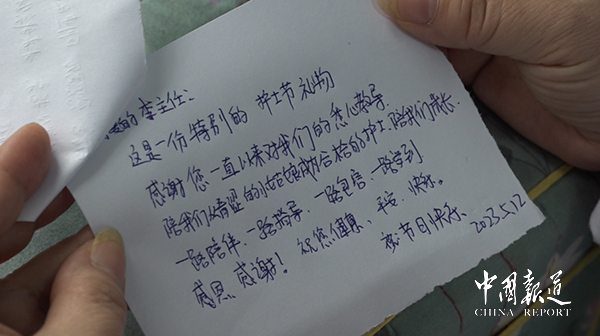 的李主任：
这是一份特别的护士节礼物
感谢您一直以来对我们的悉心教导.
陪我们从懵望的小白成合格的护士.陪我们成长.
一路陪伴、一路指导、一路包容、一路学到
感恩、感谢！祝您健康、平安、快乐。
节日快乐.
2023.5.12
中国报道
CHINA REPORT